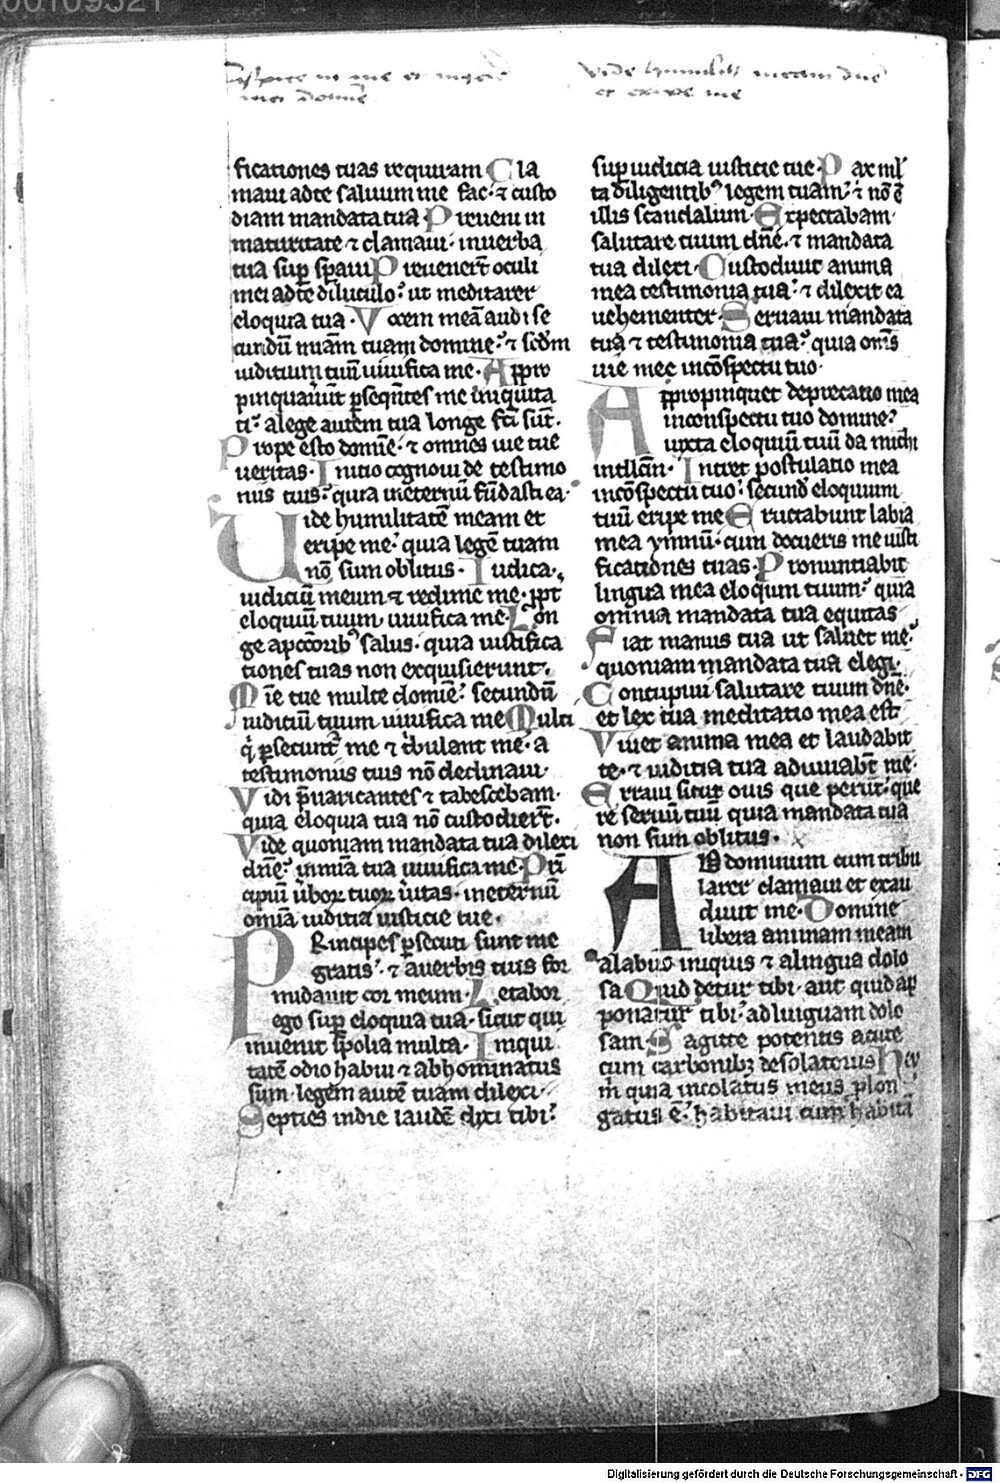 00109321
Aspice in me et miserere
mei domine
Vide humilitatem meam dne
et eripe me
ficationes tuas requiram Cla
maui ad te saluum me fac· ⁊ custo
diam mandata tua Preueni in
maturitate ⁊ clamaui· in uerba
tua sup̄ sp̄aui Preuener̄t oculi
mei ad te diluculo· ut meditarer
eloquia tua· Vocem meā audi se
cundū miām tuam domine· ⁊ scd̄m
iuditium tuū uiuifica me· Appro
pinquauer̄ūt ꝑseqn̄tes me iniquita
ti· a lege autem tua longe fc̄i sūt·
Prope esto domīe· ⁊ omnes uie tue
ueritas· Initio cognoui de testimo
niis tuis· quia in eternū fūdasti ea·
Vide humilitatē meam et
eripe me· quia legē tuam
nō sum oblitus· Iudica
iudiciū meum ⁊ redime me· ꝓpt
eloquiū tuum uiuifica me· Lon
ge a pctōrib⁹ salus· quia iustifica
tiones tuas non exquisierunt·
Mīe tue multe domīe· secundū
iudiciū tuum uiuifica me Multi
q̇ ꝑsecunt᷑ me ⁊ t̓bulant me· a
testimoniis tuis nō declinaui·
Vidi p̄uaricantes ⁊ tabescebam·
quia eloquia tua nō custodier̄t·
Vide quoniam mandata tua dilexi
dn̄e· in miā tua uiuifica me· Prī
cipiū u̓boꝝ tuoꝝ u̓itas· in eternū
omīa iuditia iusticie tue·
Principes ꝑsecuti sunt me
gratis· ⁊ a uerbis tuis for
midauit cor meum· Letabor
ego sup̄ eloquia tua· sicut qui
inuenit spolia multa· Iniqui
tatē odio habui ⁊ abhominatus
sum· legem autē tuam dilexi·
Septies in die laudē dixi tibi·
sup̄ iudicia iusticie tue· Pax ml̓
ta diligentib⁹ legem tuam· ⁊ nō ē
illis scandalum· Expectabam
salutare tuum dn̄e· ⁊ mandata
tua dilexi· Custodiuit anima
mea testimonia tua· ⁊ dilexit ea
uehementer· Seruaui mandata
tua ⁊ testimonia tua· quia om̄s
uie mee in cōspectu tuo·
Appropinquet deprecatio mea
in conspectu tuo domine·
iuxta eloquiū tuū da michi
intllc̄m· Intret postulatio mea
in cōspectu tuo· secund̄ eloquium
tuū eripe me Eructabunt labia
mea ymnū· cum docueris me iusti
ficationes tuas· Pronuntiabit
lingua mea eloqium tuum· quia
omnia mandata tua equitas
Fiat manus tua ut saluet me·
quoniam mandata tua elegi·
Concupiui salutare tuum dn̄e·
et lex tua meditatio mea est
Viuet anima mea et laudabit
te· ⁊ iuditia tua adiuuabt̄ me·
Erraui sicut ouis que perut̄· que
re seruū tuū quia mandata tua
non sum oblitus·
AD dominum cum tribu
larer clamaui et exau
diuit me· Domine
libera animam meam
a labiis iniquis ⁊ a lingua dolo
sa Quid detur tibi· aut quid ap
ponatur tibi· ad linguam dolo
sam· Sagitte potentis acute
cum carbonibꝫ desolatoriis Heu
m̓ quia incolatus meus ꝓlon
gatus ē· habitaui cum habitā
Digitalisierung gefördert durch die Deutsche Forschungsgemeinschaft - DFG